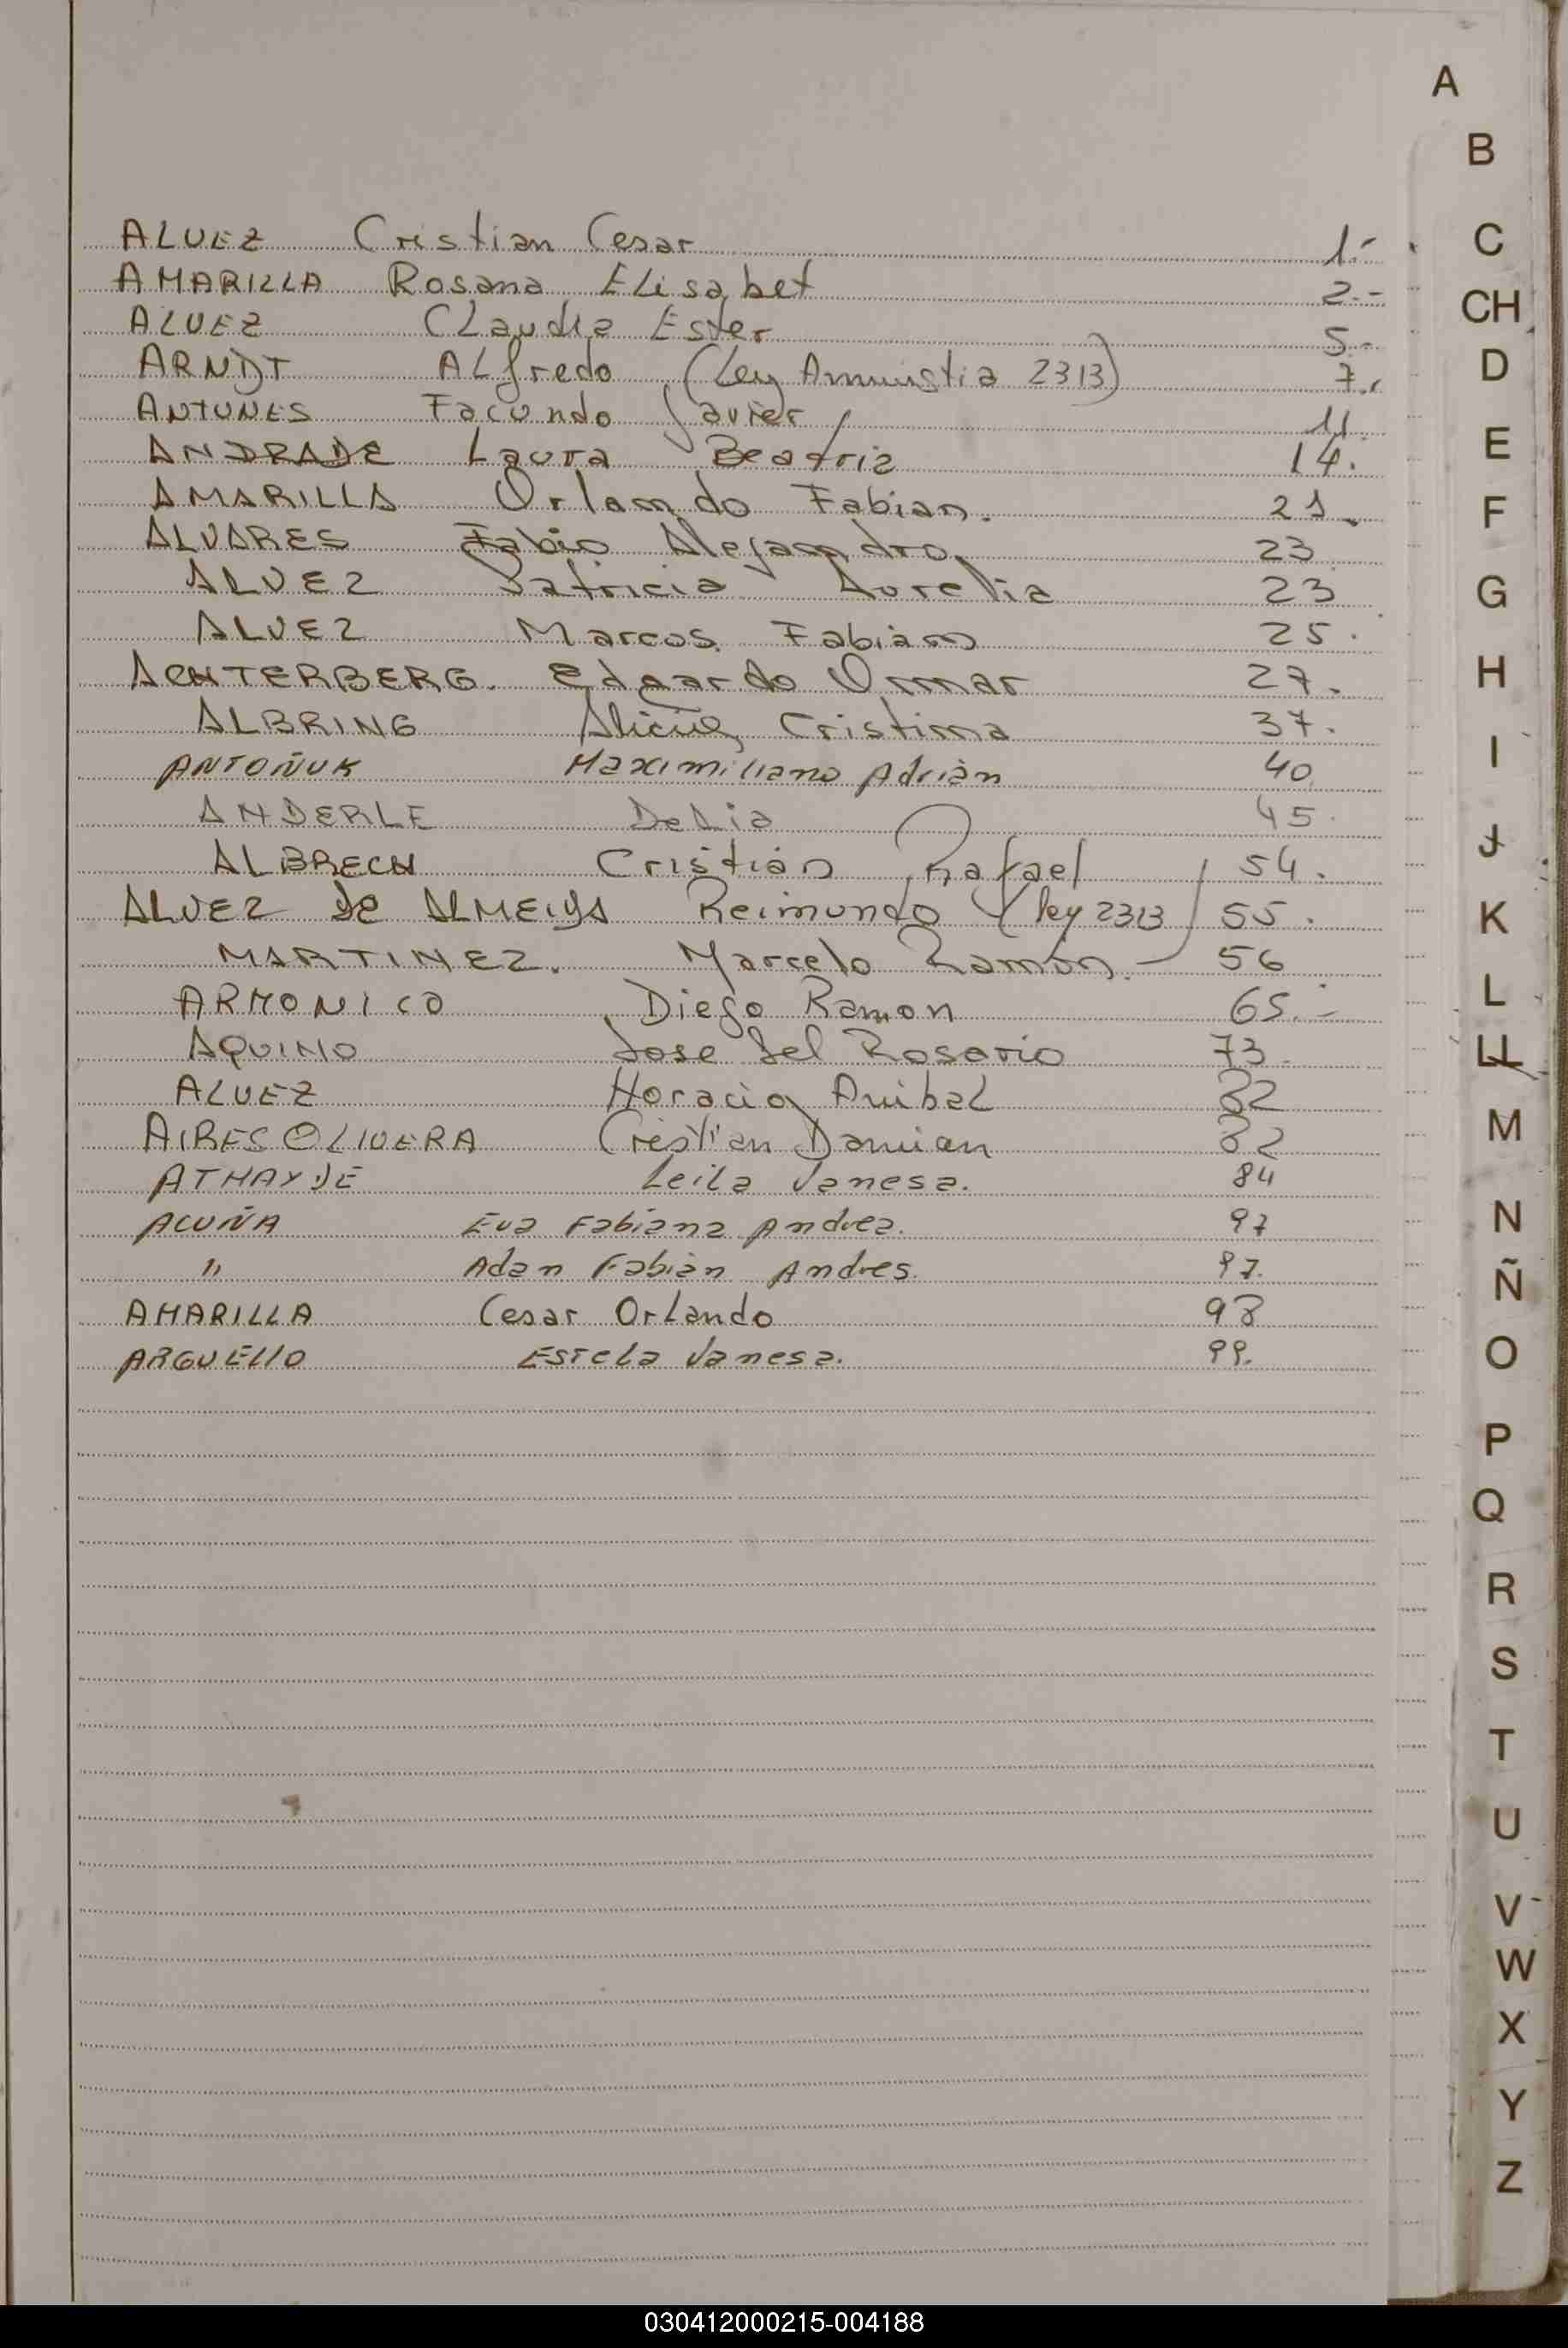 ALVEZ Cristian Cesar 1.-
AMARILLA Rosana Elisabet 2.-
ALVEZ Claudia Ester 5.-
ARNDT ALfredo (Ley Amnistia 2313) 7.
ANTUNES Facundo Javier 11.
ANDRADE Laura Beatriz 14.
AMARILLA Orlando Fabian. 21.
ALVARES Fabio Alejandro. 23
ALVEZ Patricia Aurelia 23
ALVEZ Marcos Fabian 25.
ACHTERBERG. Edgardo Omar 27.
ALBRING Cristina 37.
ANTOÑUK Maximiliano Adrián 40.
ANDERLE Delia 45.
ALBRECH Cristián Rafael 54.
ALVEZ de ALMEIDA Reimundo (ley 2313) 55.
MARTINEZ. Marcelo Ramón. - 56
ARMONICO Diego Ramon 65.-
AQUINO Jose del Rosario 73.
ALVEZ Horacio Anibal 82
AIRES OLIVERA Cristian Damian 82
ATHAYDE Leila Vanesa. 84
ACUÑA Eva Fabiana Andrea. 97
" Adan Fabián Andres. 97.
AMARILLA Cesar Orlando 98
ARGUELLO Estela Vanesa. 99.
A
B
C
CH
D
E
F
G
H
I
J
K
L
LL
M
N
Ñ
O
P
Q
R
S
T
U
V
W
X
Y
Z
030412000215-004188